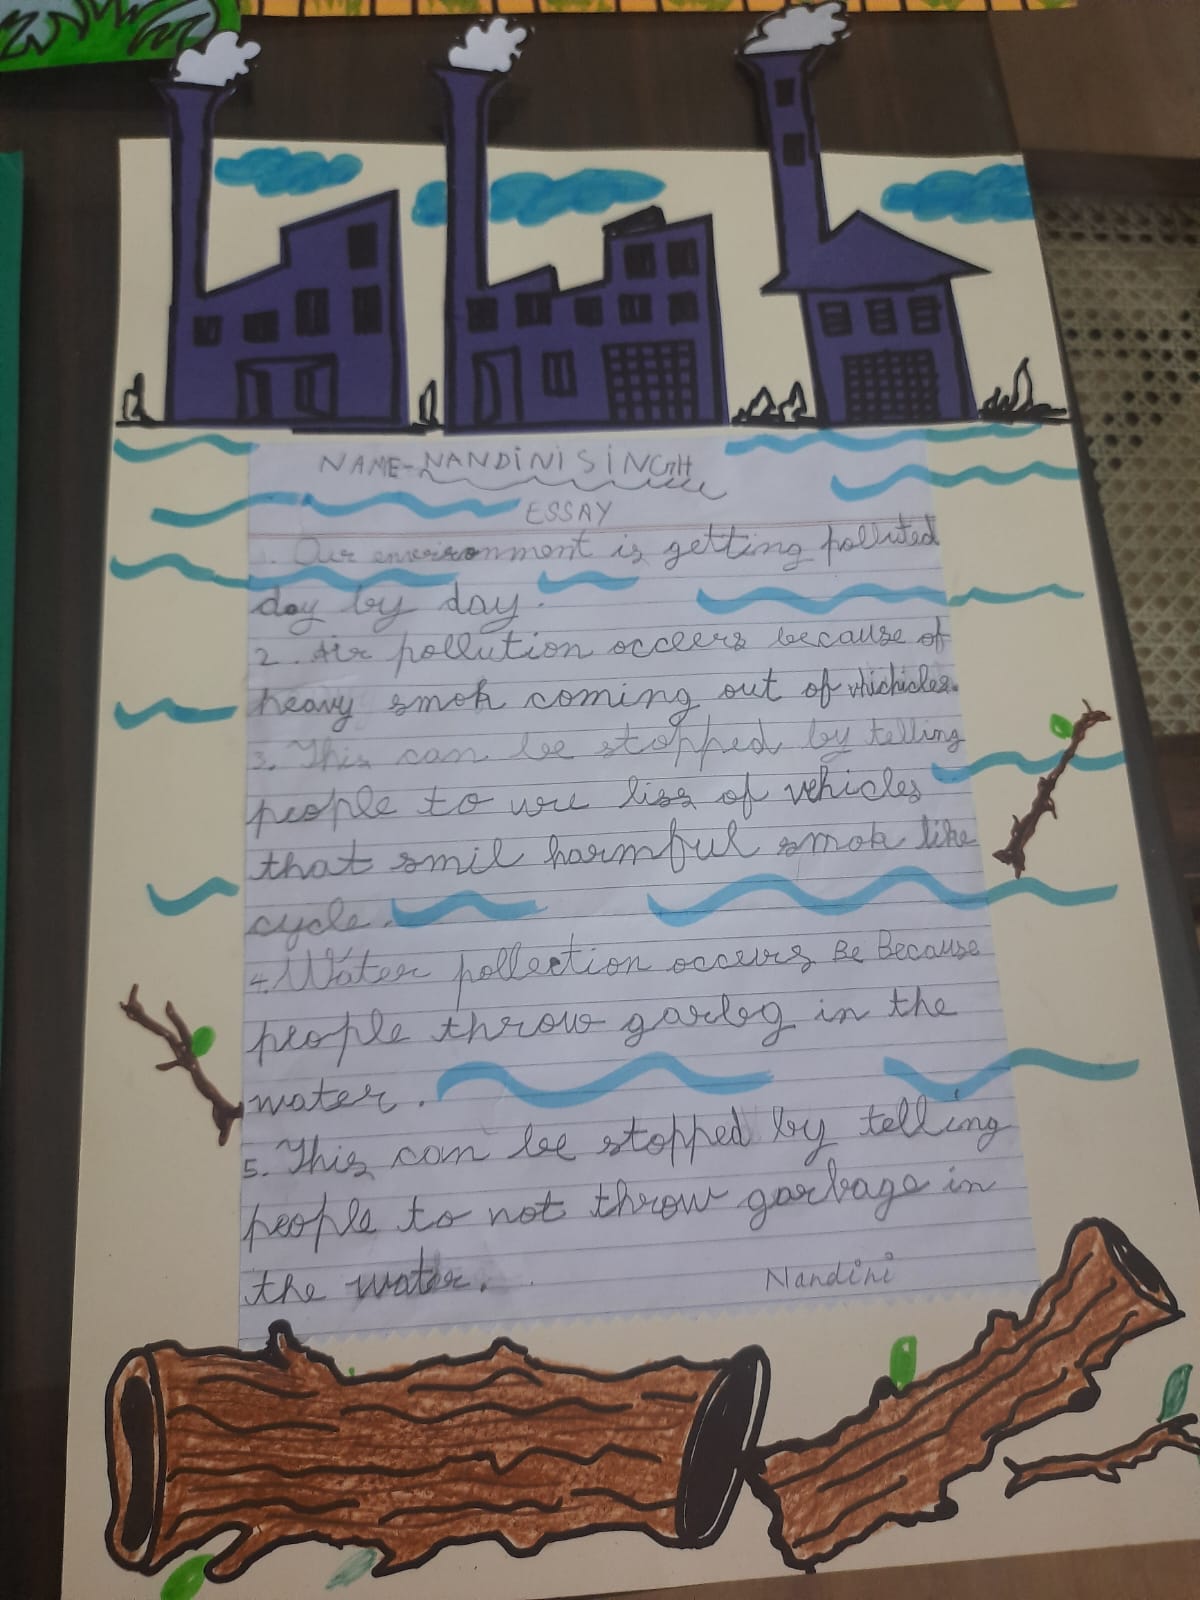 NAME-NANDINI SINGH
ESSAY
1. Our environment is getting polluted
day by day.
2. Air pollution occurs because of
heavy smok coming out of vhichicles.
3. This can be stopped by telling
people to use liss of vehicles
that smil harmful smok like
cycle.
4. Water pollection occurs Be Because
people throw garbg in the
water.
5. This can be stopped by telling
people to not throw garbage in
the water.
Nandini